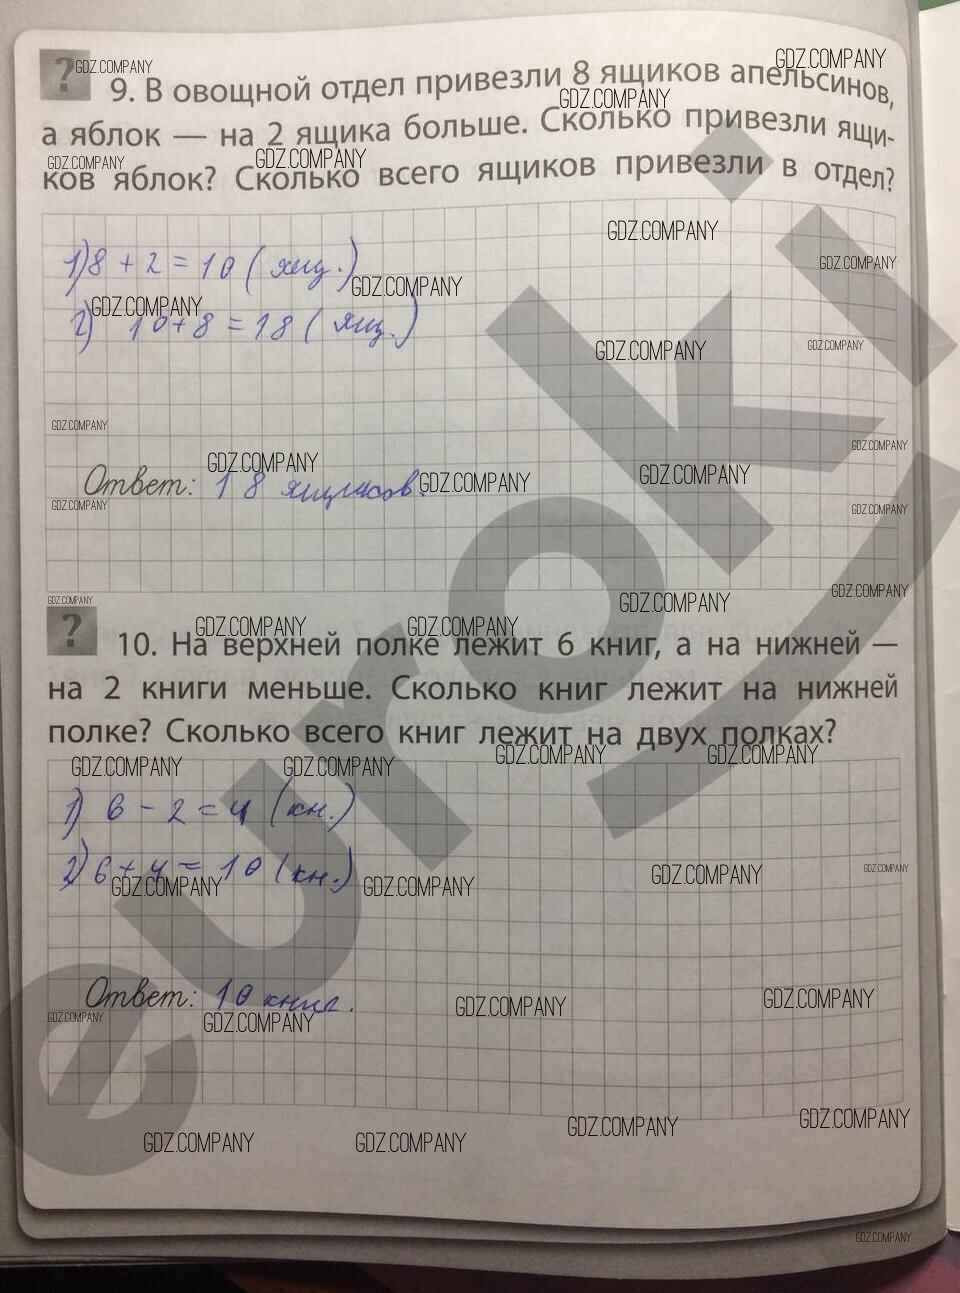 ?
9. В овощной отдел привезли 8 ящиков апельсинов,
а яблок — на 2 ящика больше. Сколько привезли ящи-
ков яблок? Сколько всего ящиков привезли в отдел?
1) 8 + 2 = 10 (ящ.)
2) 10 + 8 = 18 (ящ.)
Ответ: 18 ящиков.
?
10. На верхней полке лежит 6 книг, а на нижней —
на 2 книги меньше. Сколько книг лежит на нижней
полке? Сколько всего книг лежит на двух полках?
1) 6 - 2 = 4 (кн.)
2) 6 + 4 = 10 (кн.)
Ответ: 10 книг.
euroki
GDZ.COMPANY